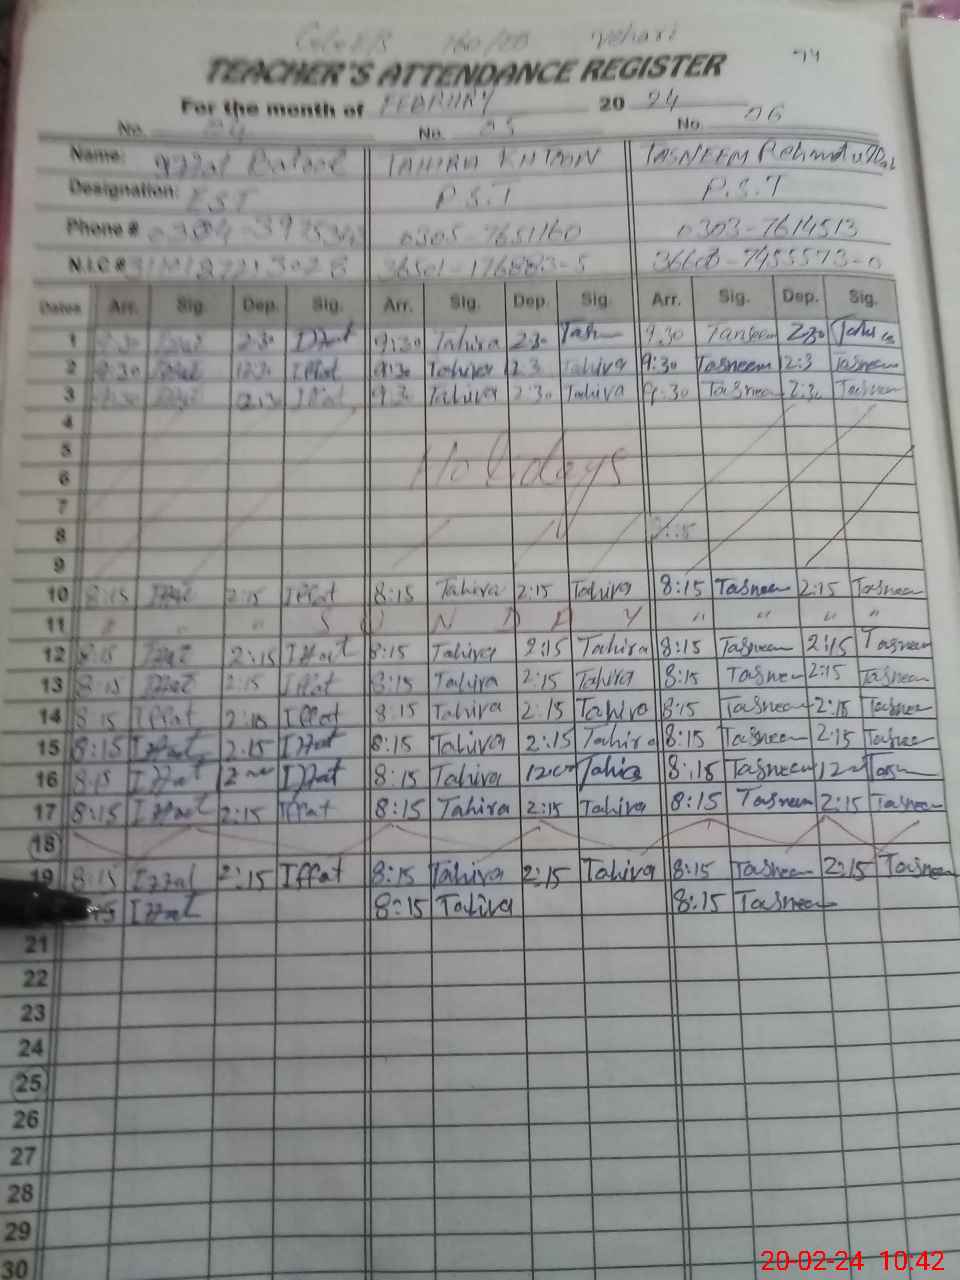 160/EB Vehari
TEACHER'S ATTENDANCE REGISTER
For the month of FEBRUARY 20 24
No. 04 No. 05 No. 06
Name: TAHIRA KHTOON TASNEEM
Designation: E.S.T P.S.T P.S.T
Phone # 0305-7651160 0303-7614513
N.I.C #
Dates Arr. Sig. Dep. Sig. Arr. Sig. Dep. Sig. Arr. Sig. Dep. Sig.
1 9:30 2:30 Iffat 9:30 Tahira 2:30 9:30 Tasneem 2:30
2 9:30 Iffat 9:30 Tahira 2:3 Tahira 9:30 Tasneem 2:3 Tasneem
3 9:30 Iffat 9:3 Tahira 2:30 Tahira 9:30 Tasneem 2:3 Tasneem
4
5
6 Holidays
7
8
9
10 8:15 Iffat 2:15 Iffat 8:15 Tahira 2:15 Tahira 8:15 Tasneem 2:15 Tasneem
11 " " S U N D A Y " " " "
12 8:15 Iffat 2:15 Iffat 8:15 Tahira 2:15 Tahira 8:15 Tasneem 2:15 Tasneem
13 8:15 Iffat 2:15 Iffat 8:15 Tahira 2:15 Tahira 8:15 Tasneem 2:15 Tasneem
14 8:15 Iffat 2:15 Iffat 8:15 Tahira 2:15 Tahira 8:15 Tasneem 2:15 Tasneem
15 8:15 Iffat 2:15 Iffat 8:15 Tahira 2:15 Tahira 8:15 Tasneem 2:15 Tasneem
16 8:15 Iffat Iffat 8:15 Tahira Tahira 8:15 Tasneem
17 8:15 Iffat 2:15 Iffat 8:15 Tahira 2:15 Tahira 8:15 Tasneem 2:15 Tasneem
18
19 8:15 Iffat 2:15 Iffat 8:15 Tahira 2:15 Tahira 8:15 Tasneem 2:15 Tasneem
Iffat 8:15 Tahira 8:15 Tasneem
21
22
23
24
25
26
27
28
29
30
20-02-24 10:42